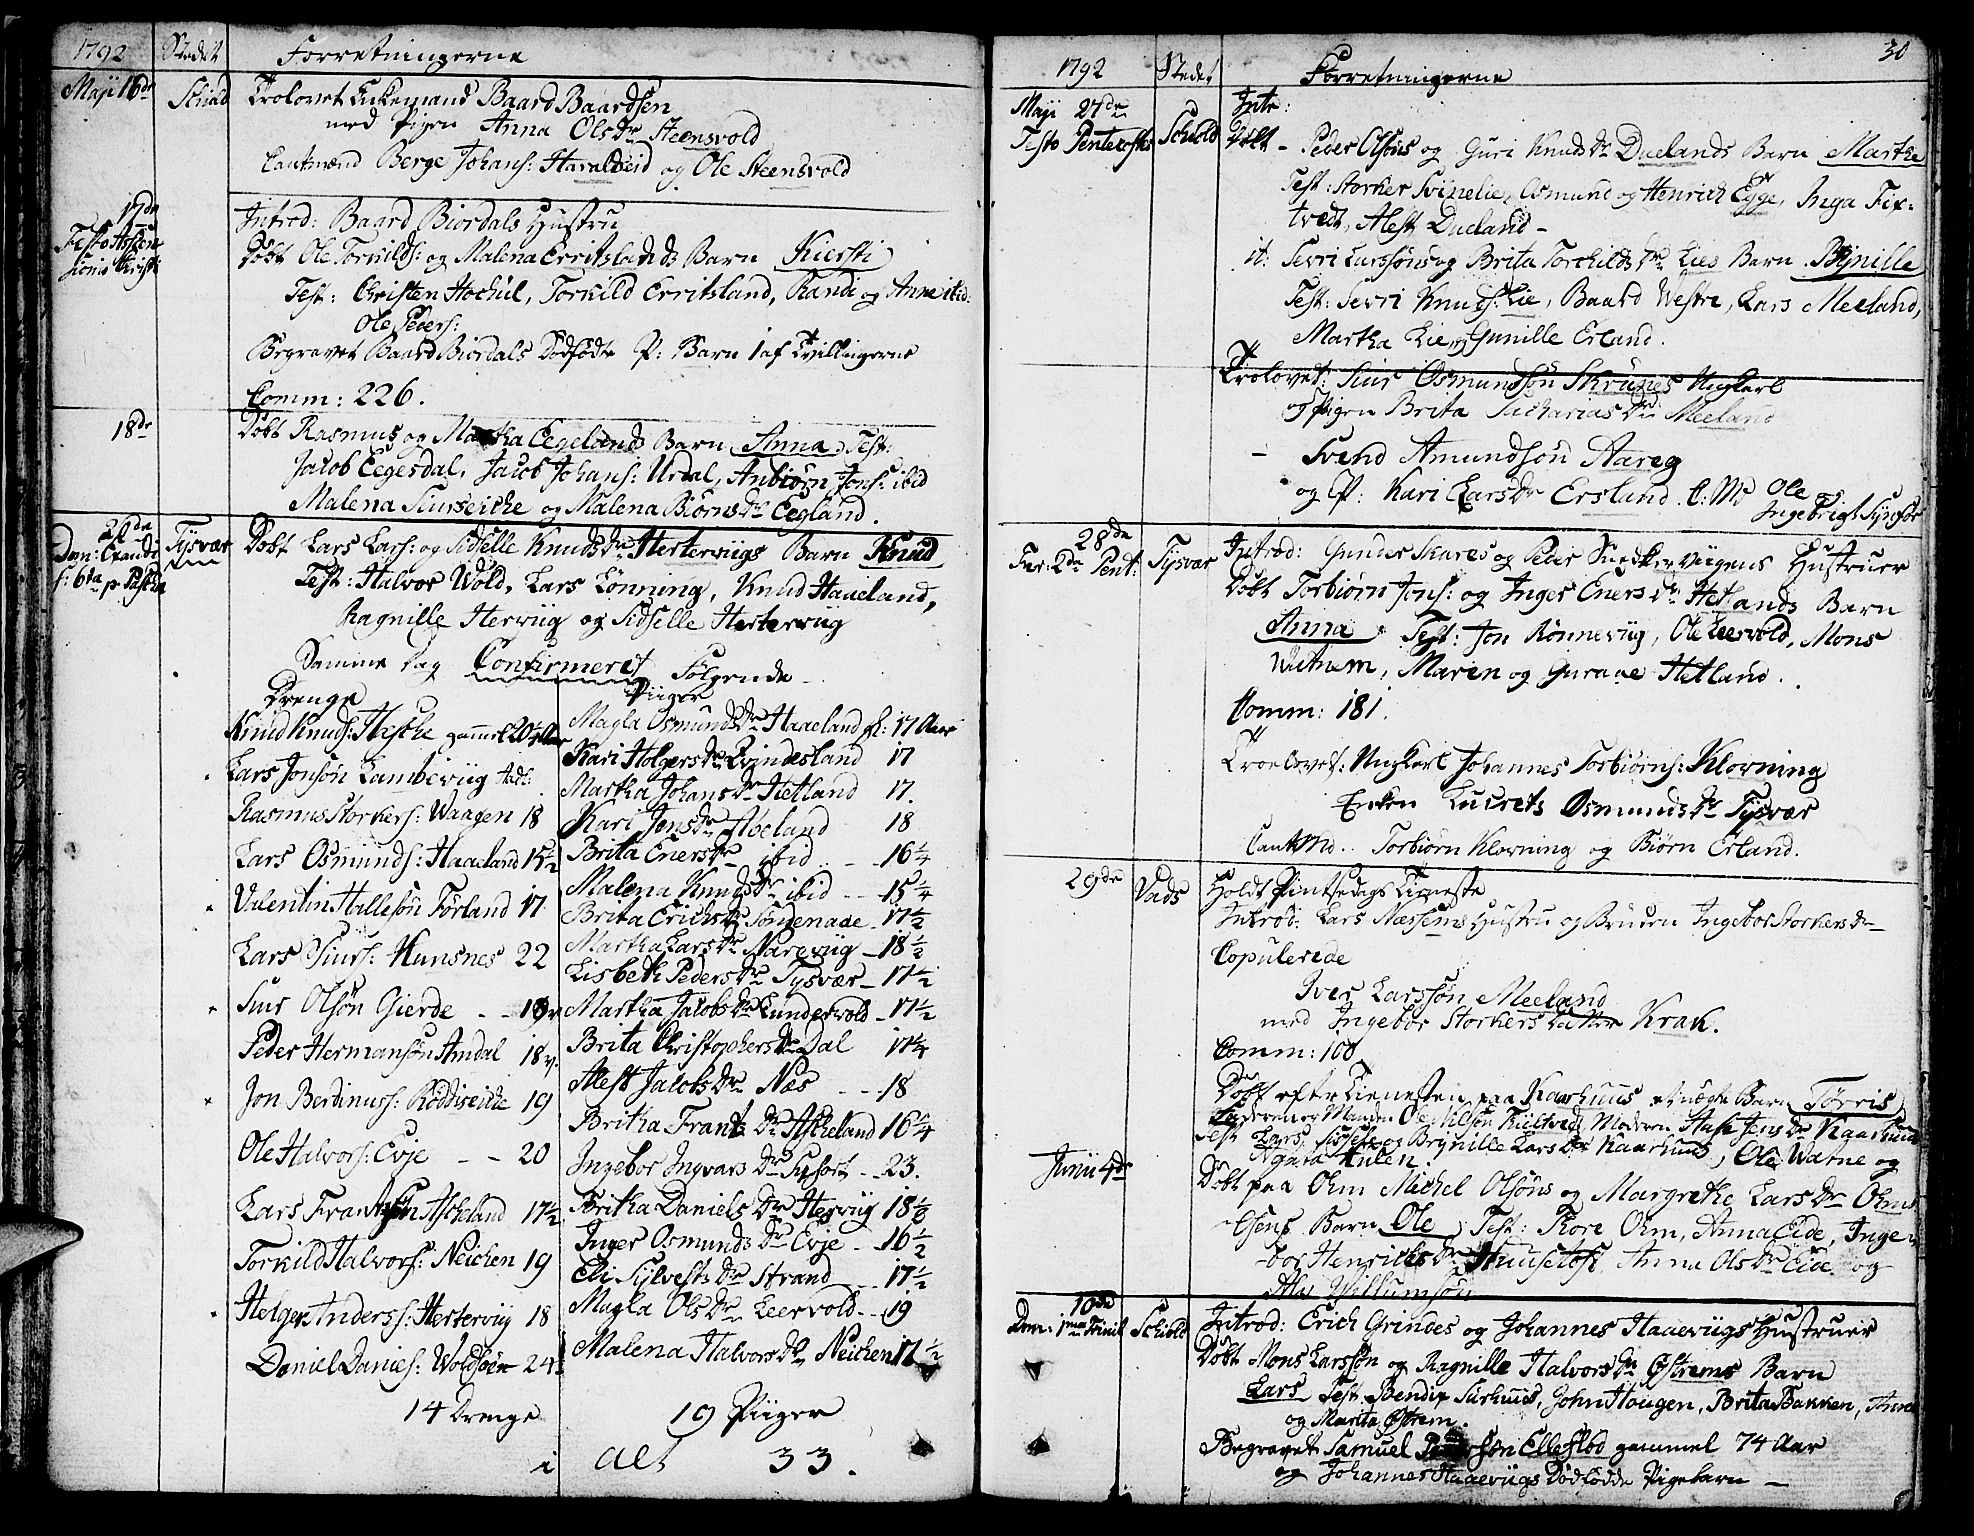 1792 Stedet Forretningerne
Maji 16de Schiold Trolovet Enkemand Baard Baardsen
med Pigen Anna Olsdr Steensvold
Cautmænd Berge Johans: Haraldseid og Ole Steensvold
17de Introd: Baard Biordals Hustru
Festo Ascensionis Christi Döbt Ole Torkilds: og Malena Erritslands Barn Kiersti
Test: Christen Hochül, Torkild Erritsland, Randi og Anne ibid.
Ole Peders:
Begravet Baard Biordals Dødfødte P: Barn 1 af Tvillingerne
Comm: 226.
18de Döbt Rasmus og Martha Eegelands Barn Anna. Test:
Jacob Eegesdal, Jacob Johans: Urdal, Anbiørn Jons: ibid
Malena Siurseiche og Malena Biørnsdr Eegland.
20de Dom: Exaudi f: 6ta p. Pascha Tysvær Döbt Lars Lars: og Sidselle Knudsdr Herterviigs Barn Knud
Test: Halvor Wold, Lars Lønning, Knud Haaeland,
Ragnille Herviig og Sidselle Herterviig
Samme Dag Confirmeret Følgende
Drenge Piiger
Knud Knuds: Hesthe gammel 20¼ Aar
Lars Jonsøn Lambeviig
Rasmus Storkers: Waagen 18
Lars Osmunds: Haaeland 15½
Valentin Hallesøn Førland 17
Lars Siurs: Hunsnes 22
Siur Olsøn Gierde - - 19
Peder Hermansøn Amdal 18
Jon Berdinus: Røddiseiche 19
Ole Halvors: Evje - - 20
Lars Frantsøn Ascheland 17½
Torkild Halvors: Neichen 19
Helge Anders: Herterviig 18
Daniel Daniels: Woldsøen 24
14 Drenge
Magla Osmundsdr Haaeland gl: 17 Aar
Kari Holgersdr Qvindesland 17
Martha Johansdr Hetland 17.
Kari Jonsdr Høeland 18
Brita Enersdr ibid - 16¼
Malena Knudsdr ibid - - 15¼
Brita Erichsdr Tøndenaae - 17½
Martha Larsdr Nareviig - 18½
Lisbeth Pedersdr Tysvær - 17½
Martha Jacobsdr Lundervold - 17½
Brita Christophersdr Dal 17¼
Alest Jacobsdr Næs - - 18
Britha Frants dr Ascheland 16¼
Ingebor Ingvars dr - 23.
Britha Daniels dr Herviig 18⅛
Inger Osmunds dr Evje - 16½
Eli Sylvesters dr Strand - - 17½
Magla Ols dr Leervold - - 19
Malena Halvors dr Neichen 17½
19 Piiger
i alt 33.
30
1792 Stedet Forretningerne
Maji 27de Intr:
Festo Pentecostes Schiold Döbt - Peder Olsøns og Guri Knudsdr Duelands Barn Marthe
Test: Storker Svinelie, Osmund og Henrich Egge, Inga Fix-
tvedt, Alest Dueland -
it: Sevri Larssøns og Brita Torchildsdr Lies Barn Bÿnille
Test: Sevri Knuds: Lie, Baard Westre, Lars Meeland,
Martha Lie og Gunille Erland.
Trolovet: Siur Osmundsøn Skrunes Ungkarl
og Pigen Brita Sachariasdr Meeland
- Svend Amundsøn Aareg
og P: Kari Larsdr Ersland. C: M: Ole og
Ingebrigt
28de Fer: 2da Pent: Tysvær Introd: Gunder Skares og Peder viigens Hustruer
Döbt Torbiørn Jons: og Inger Eners dr Hetlands Barn
Anna. Test: Jon Rønneviig, Ole Leervold, Mons
, Maren og Guraae Hetland.
Comm: 181.
Troelovet: Ungkarl Johannes Torbiørns: Klovning
Enken Lucrets Osmundsdr Tysvær
CautMd.. Torbiørn Klovning og Biørn Erland.
29de Vads Holdt Pintsedags Tieneste
Introd: Lars Næssens Hustru og Bruden Ingebor Storkersdr
Copulerede
Iver Larssøn Meeland
med Ingebor Storkersdatter Krak.
Comm: 100
Döbt efter Tienesten paa Kaarhuus et uægte Barn Tørris
Faderen er Manden Ole Nilsøn Moderen Jensdr Kaarhuus
Test: Lars, Sissele og Brynille Larsdr Kaarhuus, Ole Warne og
Hulen.
Junii 4de Döbt paa Ohm Michel Olsøns og Margrethe Larsdr Ohm
Barn Ole. Test: Tore Ohm, Anna Eide, Inge-
bor Henrichsdr Huusetoft Anna Olsdr Eide og
Willumsøn
10de Dom: 1ma Trinit Schiold Introd: Erich Grindes og Johannes Haaeviigs Hustruer
Döbt Mons Larssøn og Ragnille Halvorsdr Østrems Barn
Lars Test: Bendix Surhuus, John Hougen, Brita Bakken, Anna
og Marita Østrem.
Begravet Samuel Ellefsiød gammel 74 Aar
og Johannes Haaeviigs Dödfødde Pigebarn -